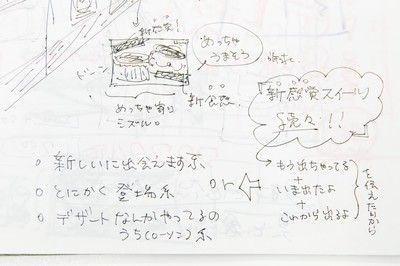 新感覚!
ドーン
めっちゃ
うまそう
めっちゃ寄り
ミズル。
新食感
「新感覚スイーツ
続々!!」
もう出ちゃってる
+
いま出たよ
+
これから出るよ
を伝えたいから
○ 新しいに出会えます系
○ とにかく登場系
or
○ デザートなんかやってるの
うち(ローソン)系